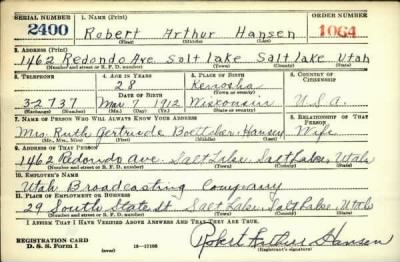 SERIAL NUMBER 1. NAME (Print) ORDER NUMBER
2400 Robert Arthur Hansen 1064
(First) (Middle) (Last)
2. ADDRESS (Print)
1462 Redondo Ave. Salt Lake Salt Lake Utah
(Number and street or R. F. D. number) (Town) (County) (State)
3. TELEPHONE 4. AGE IN YEARS 5. PLACE OF BIRTH 6. COUNTRY OF CITIZENSHIP
28 Kenosha
DATE OF BIRTH (Town or county)
3-2737 Mar 7 1912 Wisconsin U.S.A.
(Mo.) (Day) (Yr.) (State or country)
7. NAME OF PERSON WHO WILL ALWAYS KNOW YOUR ADDRESS 8. RELATIONSHIP OF THAT PERSON
Mrs. Ruth Gertrude Boettcher Hansen Wife
(Mr., Mrs., Miss) (First) (Middle) (Last)
9. ADDRESS OF THAT PERSON
1462 Redondo Ave. Salt Lake, Salt Lake, Utah
(Number and street or R. F. D. number) (Town) (County) (State)
10. EMPLOYER'S NAME
Utah Broadcasting Company
11. PLACE OF EMPLOYMENT OR BUSINESS
29 South State St. Salt Lake, Salt Lake, Utah
(Number and street or R. F. D. number) (Town) (County) (State)
I AFFIRM THAT I HAVE VERIFIED ABOVE ANSWERS AND THAT THEY ARE TRUE.
REGISTRATION CARD Robert Arthur Hansen
D. S. S. Form 1 (Registrant's signature)